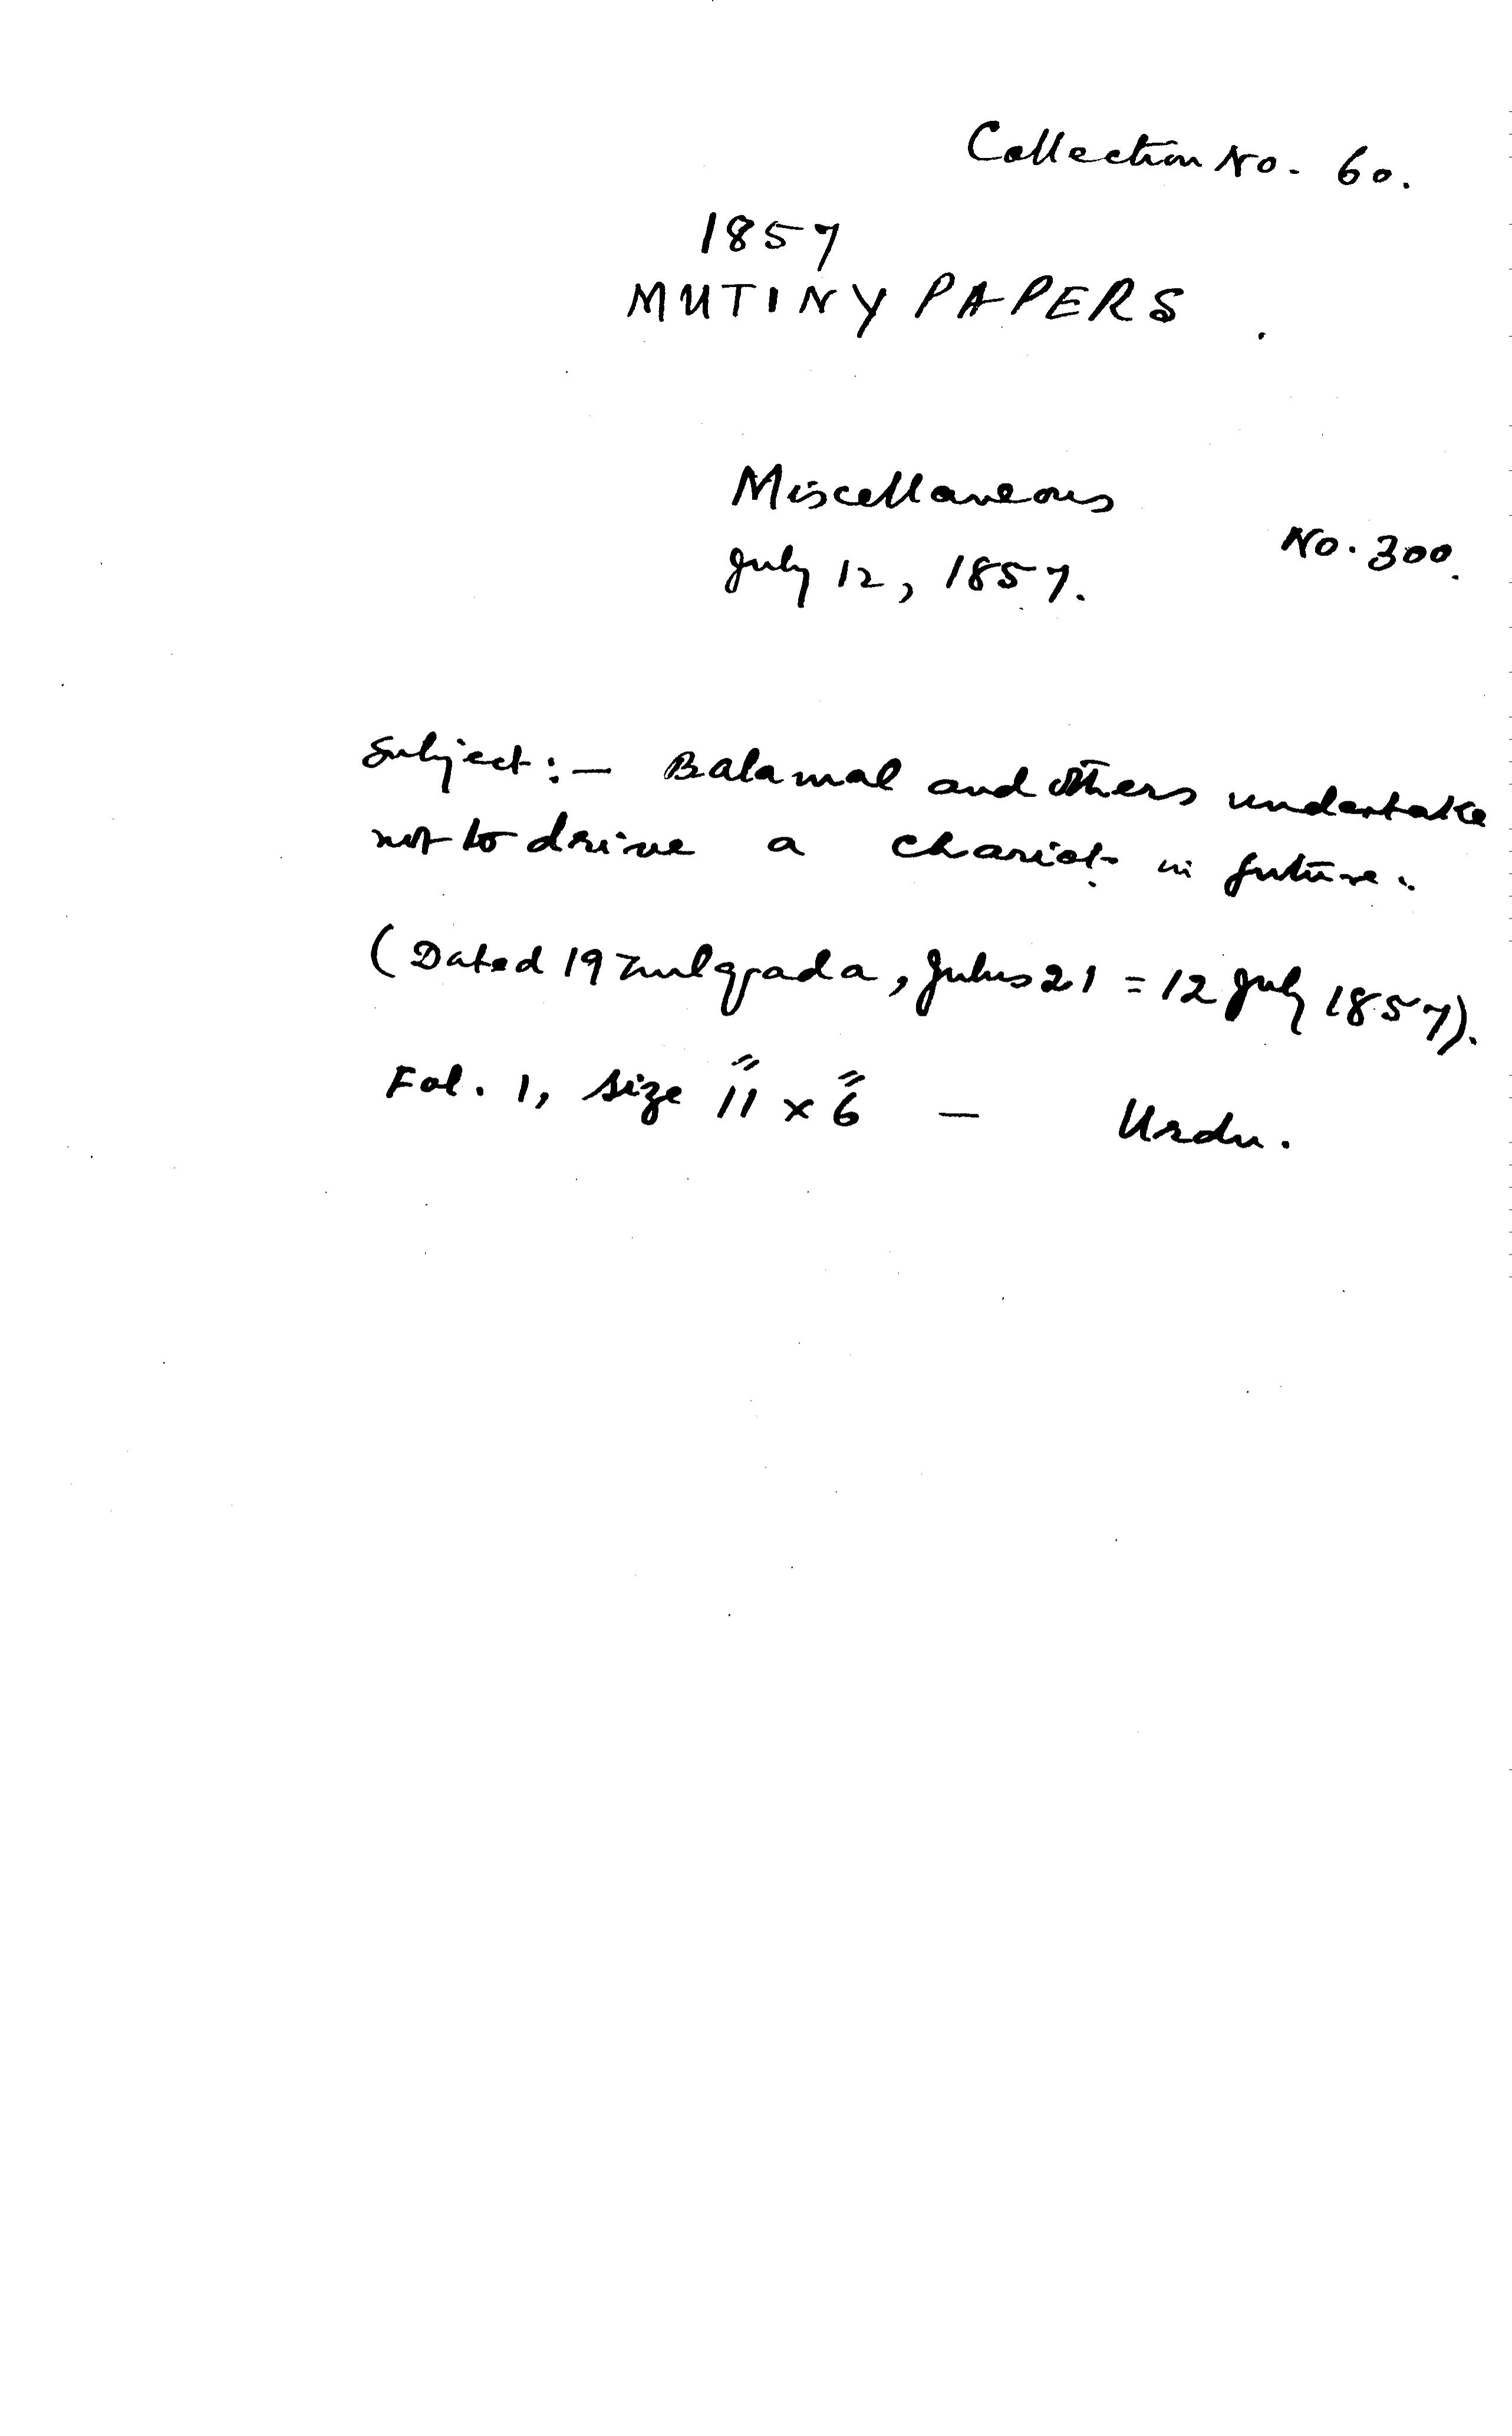 Collection No. 60.
1857
MUTINY PAPERS.
Miscellaneous
No. 300.
July 12, 1857.
Subject:- Balamal and others undertake
not to drive a chariot in future.
(Dated 19 Zulqada, Julus 21 = 12 July 1857).
Fol. 1, size 11" x 6" - Urdu.